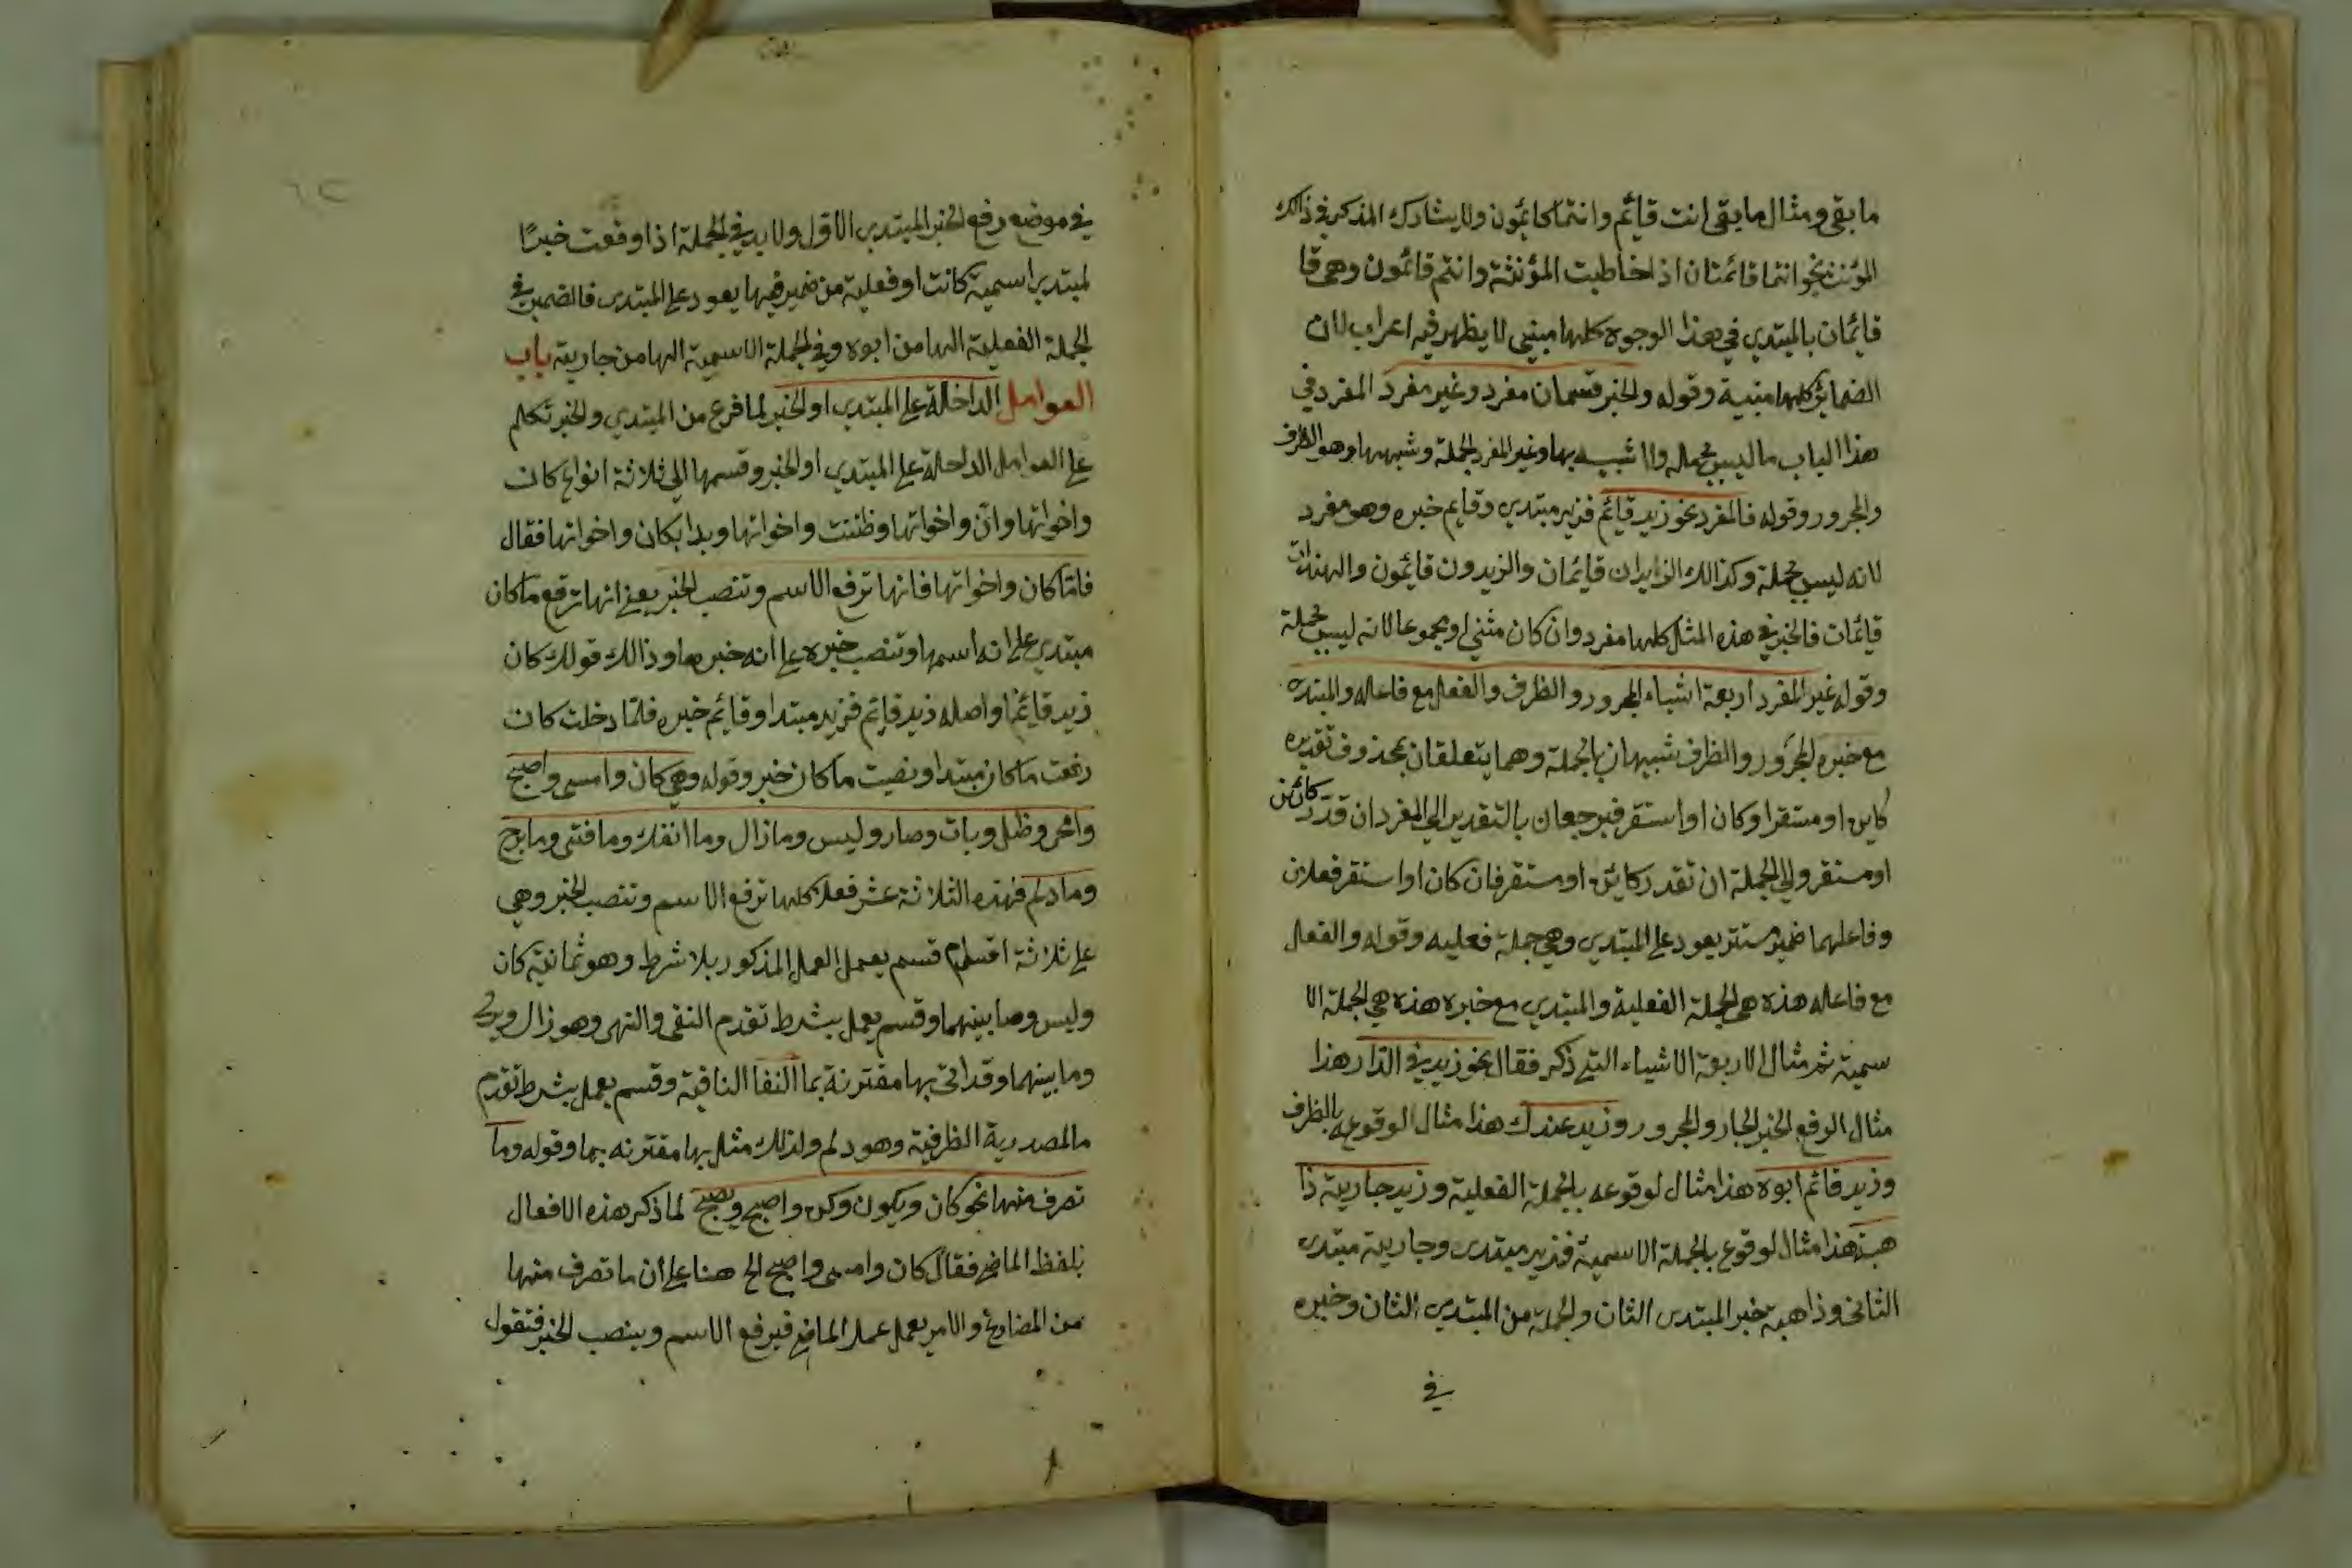 ما بقي ومثال ما بقي انت قائم وانتما قائمون ولا يشارك المذكر في ذالك
المؤنث نحو انتما قائمتان اذا خاطبت المؤنثة وانتم قائمون وهي قا
قائمان بالمبتدي في هذا الوجوه كلها مبني لا يظهر فيه اعراب لان
الضمائر كلها مبنية وقوله والخبر قسمان مفرد وغير مفرد المفرد في
هذا الباب ما ليس بجمله ولا شبيه بها وغير المفرد الجملة وشبهها وهو الظرف
والمجرور وقوله فالمفرد نحو زيد قائم فزيد مبتدي وقايم خبره وهو مفرد
لانه ليس بجملة وكذالك الزايدان قايمان والزيدون قايمون والهندات
قائمات فالخبر في هذه المثل كلها مفرد وان كان مثنى او مجموعا لانه ليس بجملة
وقوله غير المفرد اربعة اشياء المجرور والظرف والفعل مع فاعله والمبتدى
مع خبره المجرور والظرف شبيهان بالجملة وهما يتعلقان بمحذوف تقديره
كاين او مستقر او كان او استقر فيرجعان بالتقدير الى المفرد ان قدر كائن
او مستقر والى الجملة ان تقدر كائن او مستقر فان كان او استقر فعلان
وفاعلهما ضمير مستتر يعود على المبتدي وهي جملة فعليه وقوله والفعل
مع فاعله هذه هي الجملة الفعلية والمبتدي مع خبره هذه هي الجملة الا
سمية ثم مثال الاربعة الاشياء التي ذكر فقال نحو زيد في الدار هذا
مثال الوقع الخبر الجار والمجرور وزيد عندك هذا مثال الوقوعه بالظرف
وزيد قائم ابوه هذا مثال لوقوعه بالجملة الفعلية وزيد جاريته ذا
هبة هذا مثال لوقوع بالجملة الاسمية فزيد مبتدى وجاريته مبتدى
الثاني وذاهبة خبر المبتدى الثان والجملة من المبتدي الثان وخبره
في
في موضع رفع الخبر المبتدي الاول ولا بد في الجملة اذا وقعت خبرًا
لمبتدي اسمية كانت او فعلية من ضمير فيها يعود على المبتدى فالضمير في
الجملة الفعلية الها من ابوه وفي الجملة الاسمية الها من جاريته باب
العوامل الداخلة على المبتدي او الخبر لما فرغ من المبتدي والخبر تكلم
على العوامل الداخلة على المبتدي او الخبر وقسمها الى ثلاثة انواع كان
واخواتها وانّ واخواتها وظننت واخواتها وبدا بكان واخواتها فقال
فامّا كان واخواتها فانها ترفع الاسم وتنصب الخبر يعني انها ترفع ما كان
مبتدي على انه اسمها وتنصب خبره على انه خبرها وذالك قولك كان
زيد قائما واصله زيد قائم فزيد مبتدا وقائم خبره فلمّا دخلت كان
رفعت ما كان مبتدا ونصبت ما كان خبر وقوله وهي كان وامسى واصبح
واضحى وظل وبات وصار وليس وما زال وما انفك وما فتى وما برح
وما دام فهذه الثلاثة عشر فعلا كلها ترفع الاسم وتنصب الخبر وهي
على ثلاثة اقسام قسم يعمل العمل المذكور بلا شرط وهو ثمانية كان
وليس وما بينهما وقسم يعمل بشرط تقدم النفي والنهى وهو زال وبرح
وما بينهما وقد اتى بها مقترنة بما النفا النافية وقسم يعمل بشرط تقدم
ما المصدرية الظرفية وهو دام ولذلك مثل بها مقترنه بما وقوله وما
تصرف منها نحو كان ويكون وكن واصبح ويصبح لما ذكر هذه الافعال
بلفظ الماضي فقال كان وامسى واصبح الح هنا على ان ما تصرف منها
من المضارع والامر يعمل عمل الماضي فيرفع الاسم وينصب الخبر فتقول